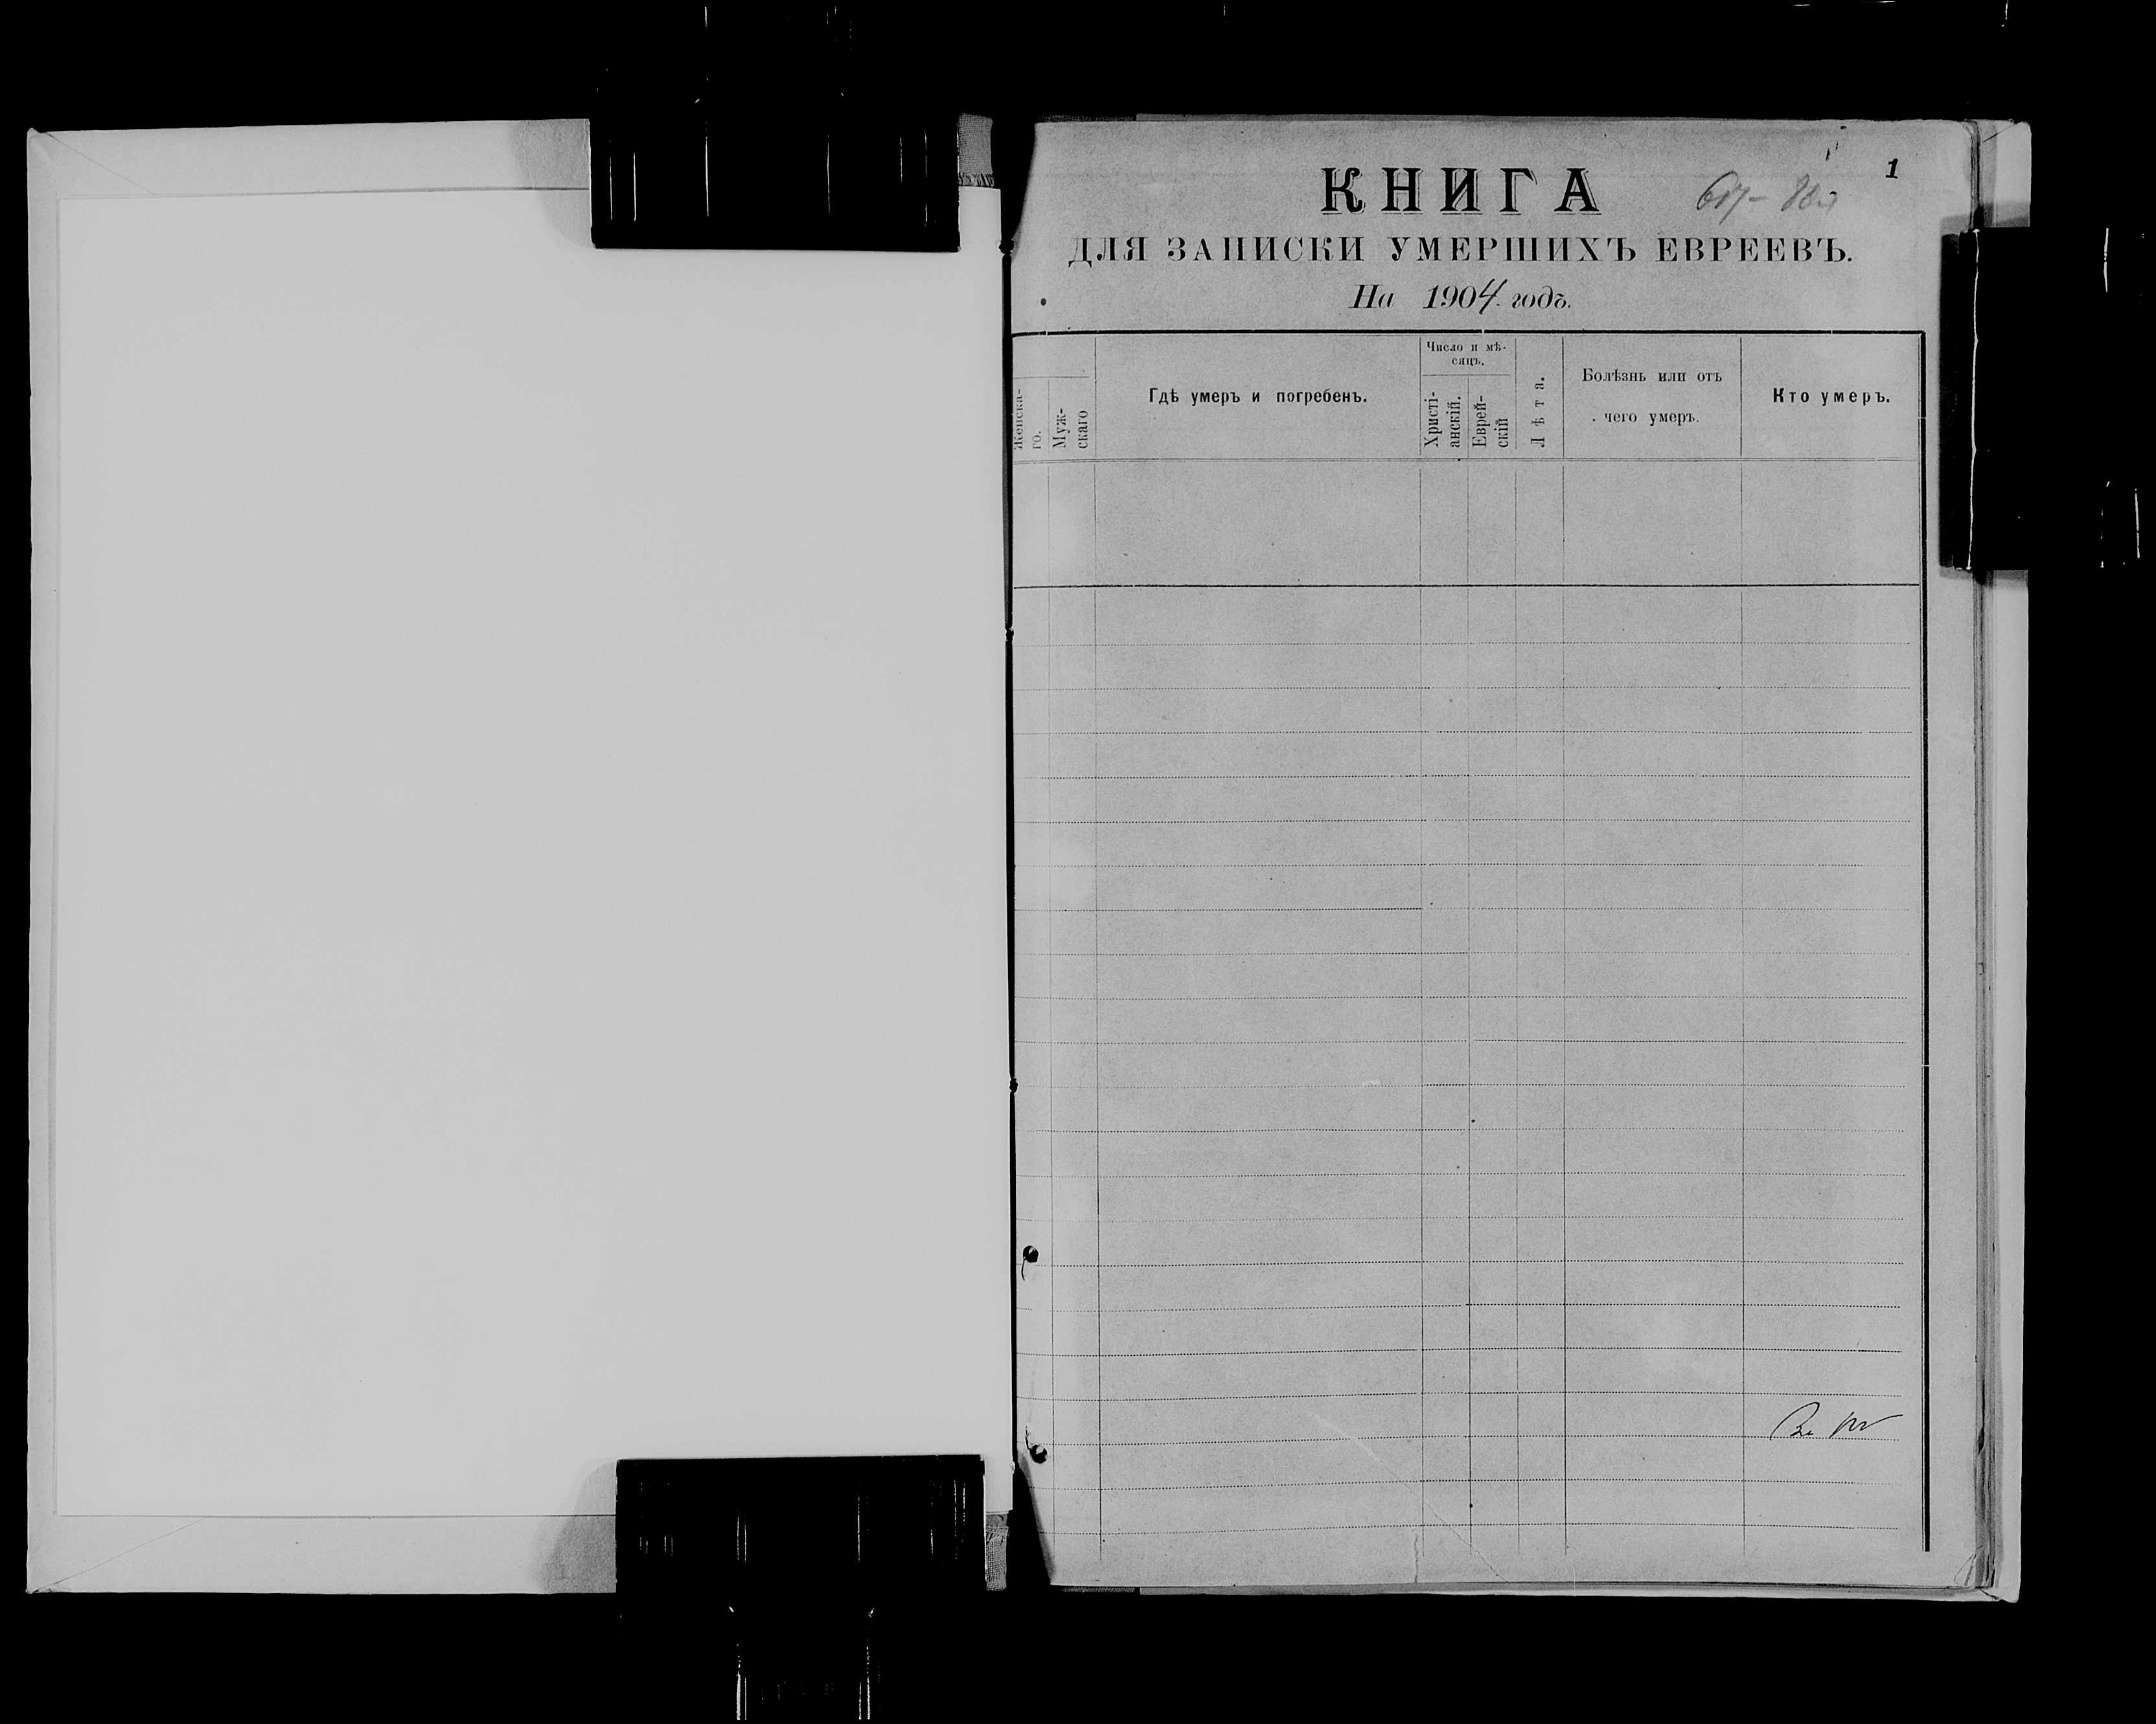 1
КНИГА
ДЛЯ ЗАПИСКИ УМЕРШИХЪ ЕВРЕЕВЪ.
На 1904. годъ.
Женска-
го.
Муж-
скаго
Гдѣ умеръ и погребенъ.
Число и мѣ-
сяцъ.
Христі-
анскій.
Еврей-
скій
Лѣта.
Болѣзнь или отъ
чего умеръ.
Кто умеръ.